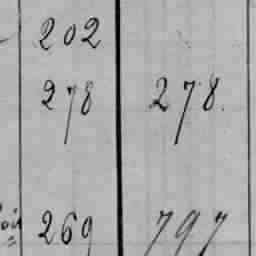 202
278 278.
269 797